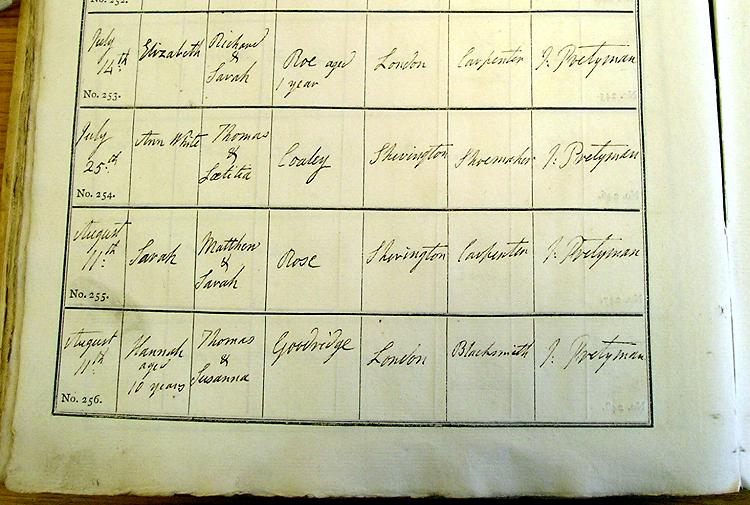 No. 252.
July 14th Elizabeth Richard & Sarah Roe aged 1 year London Carpenter J. Pretyman
No. 253.
July 25th Ann White Thomas & Lœtitia Coaley Shevington Shoemaker J. Pretyman
No. 254.
August 11th Sarah Matthew & Sarah Rose Shevington Carpenter J. Pretyman
No. 255.
August 11th Hannah aged 10 years Thomas & Susanna Goodridge London Blacksmith J. Pretyman
No. 256.